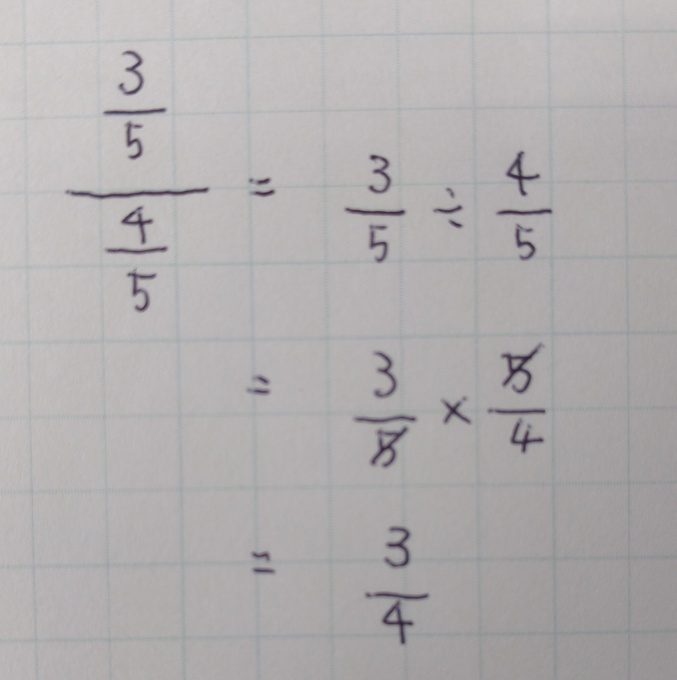 (3/5)/(4/5) = 3/5 ÷ 4/5
= 3/5 × 5/4
= 3/4